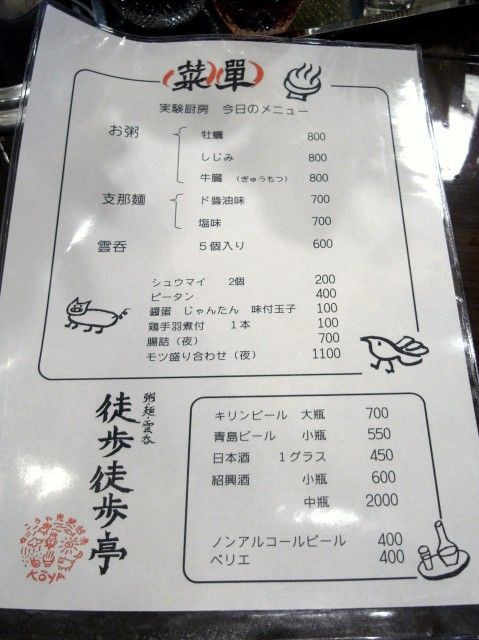 菜單
実験厨房 今日のメニュー
お粥 牡蠣 800
しじみ 800
牛臓 (ぎゅうもつ) 800
支那麺 ド醤油味 700
塩味 700
雲呑 5個入り 600
シュウマイ 2個 200
ピータン 400
醤蛋 じゃんたん 味付玉子 100
鶏手羽煮付 1本 100
腸詰(夜) 700
モツ盛り合わせ(夜) 1100
粥・麺・雲呑
徒歩徒歩亭
KōYA
キリンビール 大瓶 700
青島ビール 小瓶 550
日本酒 1グラス 450
紹興酒 小瓶 600
中瓶 2000
ノンアルコールビール 400
ペリエ 400